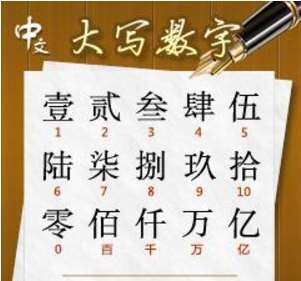 中文 大写数字
壹 贰 叁 肆 伍
1 2 3 4 5
陆 柒 捌 玖 拾
6 7 8 9 10
零 佰 仟 万 亿
0 百 千 万 亿